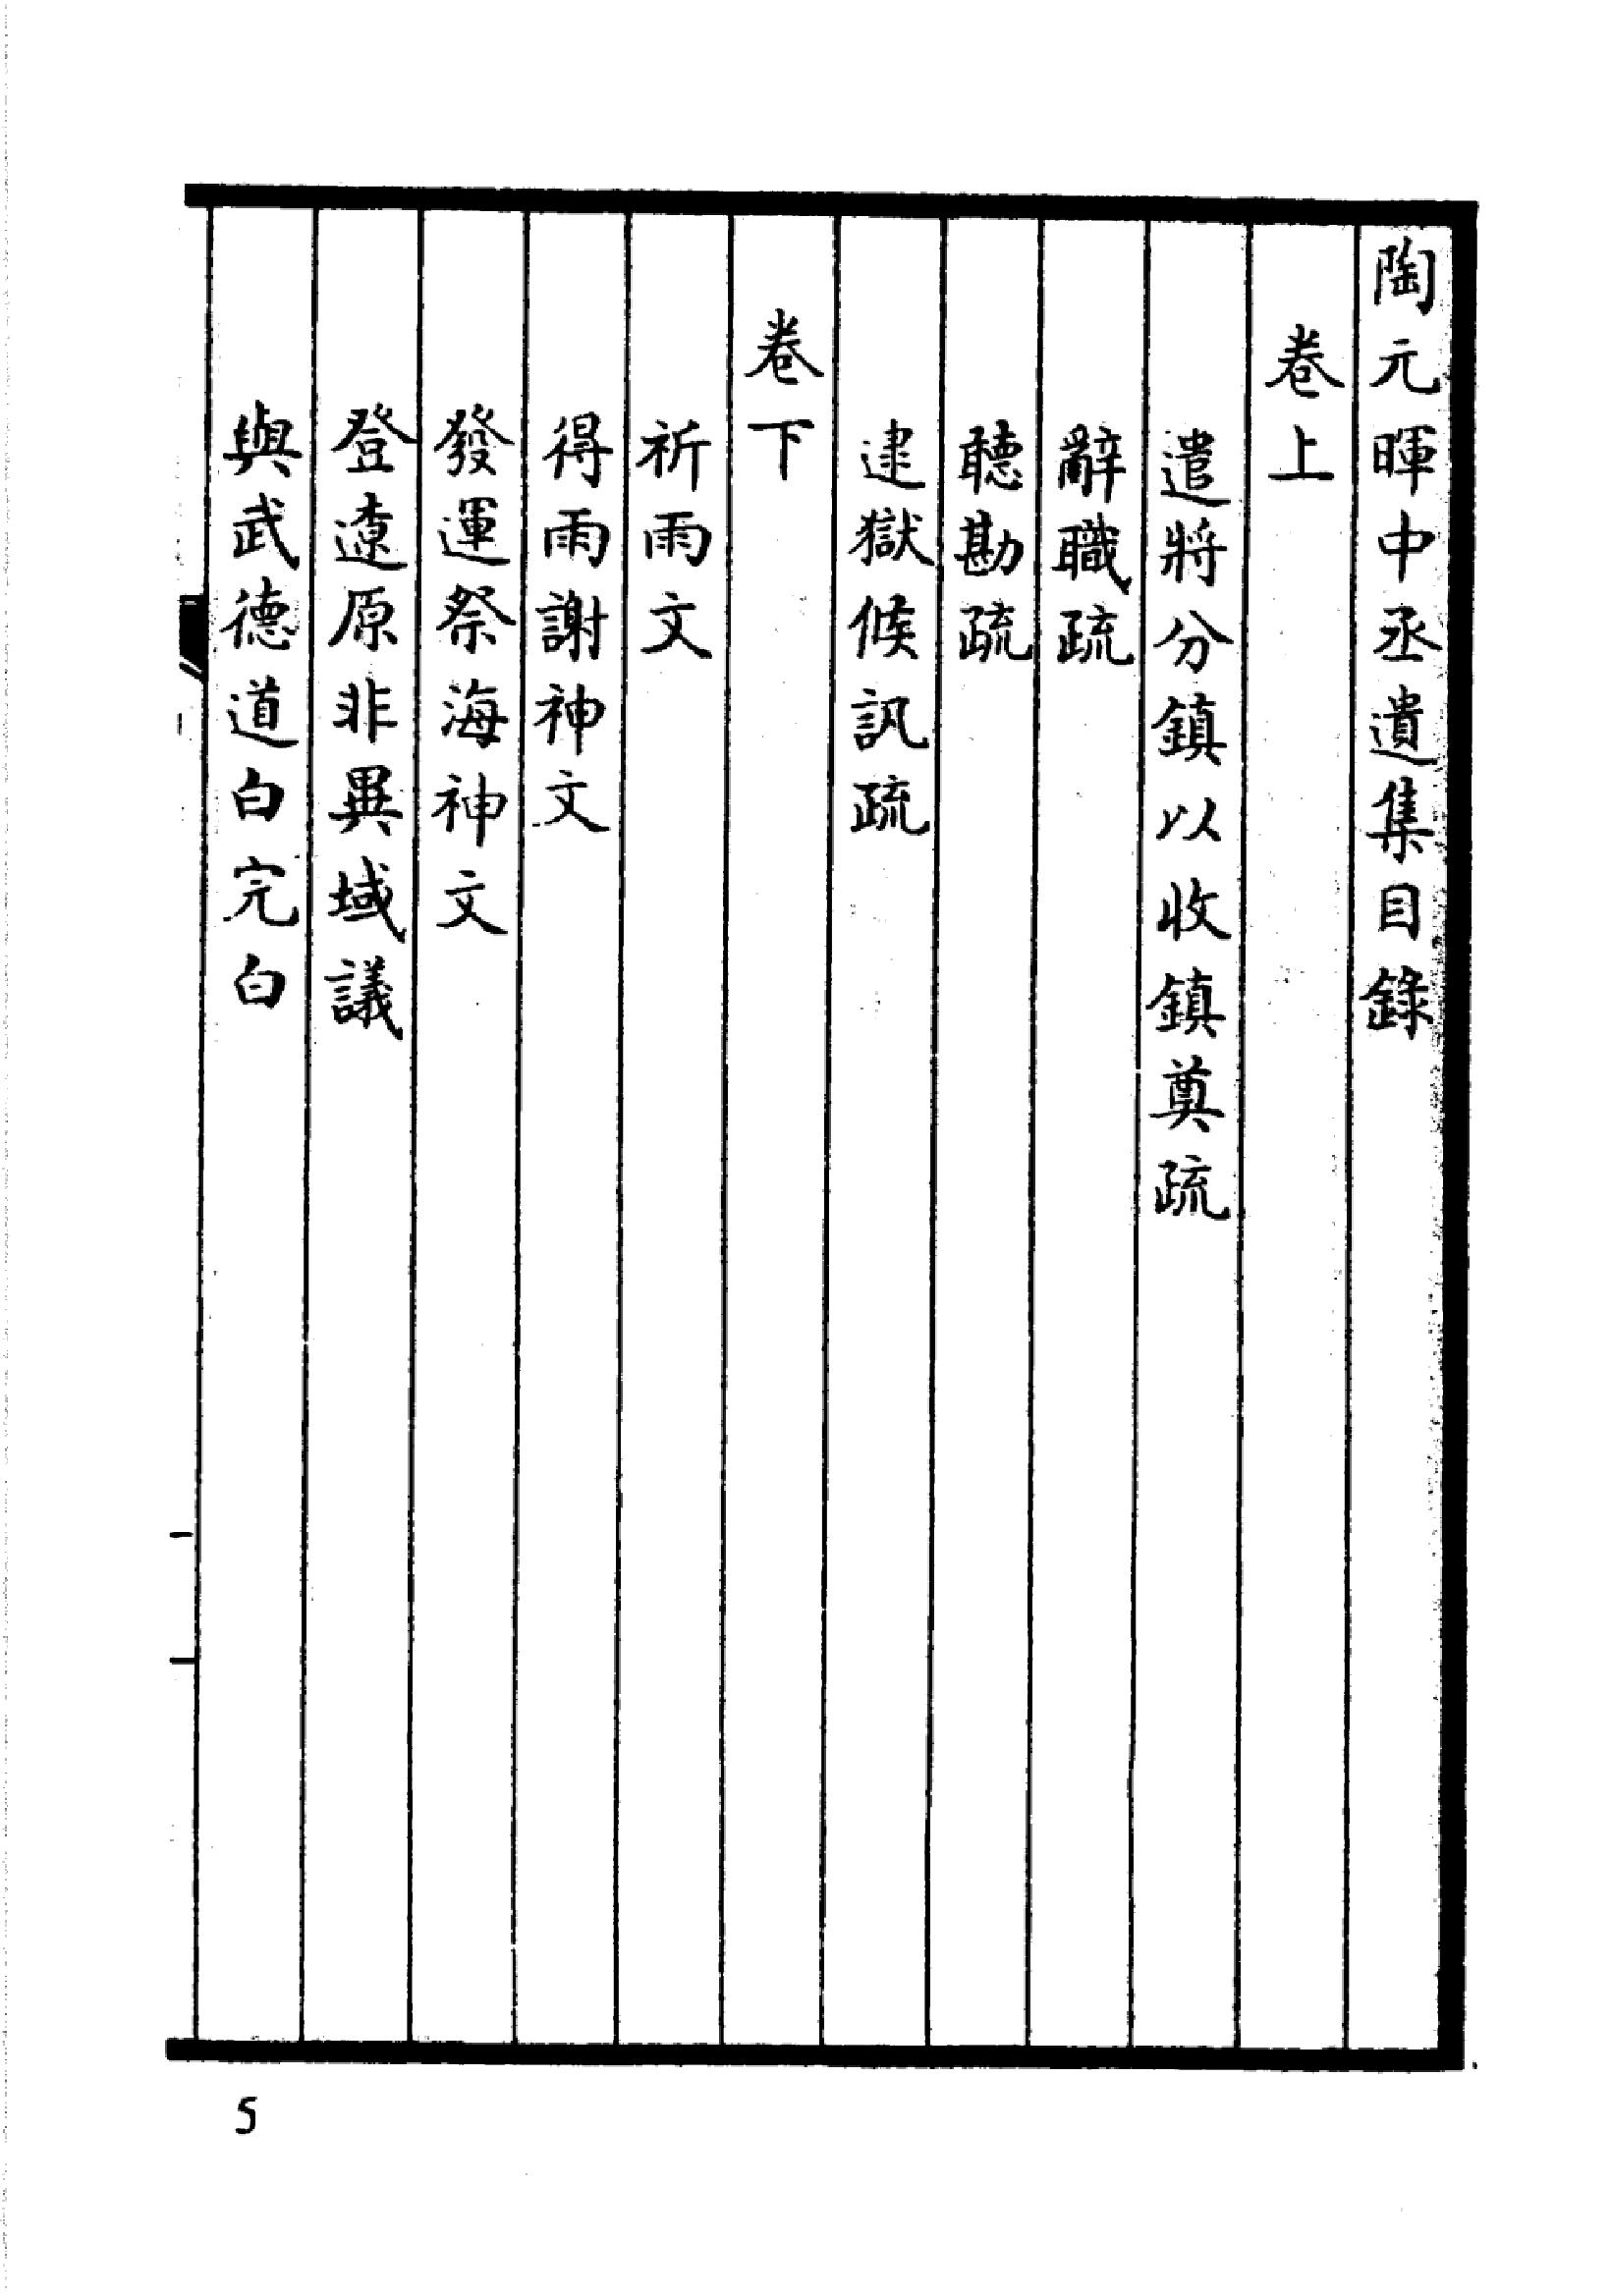 陶元暉中丞遺集目錄
卷上
遣將分鎮以收鎮奠疏
辭職疏
聽勘疏
逮獄候訊疏
卷下
祈雨文
得雨謝神文
發運祭海神文
登遼原非異域議
與武德道白完白
5